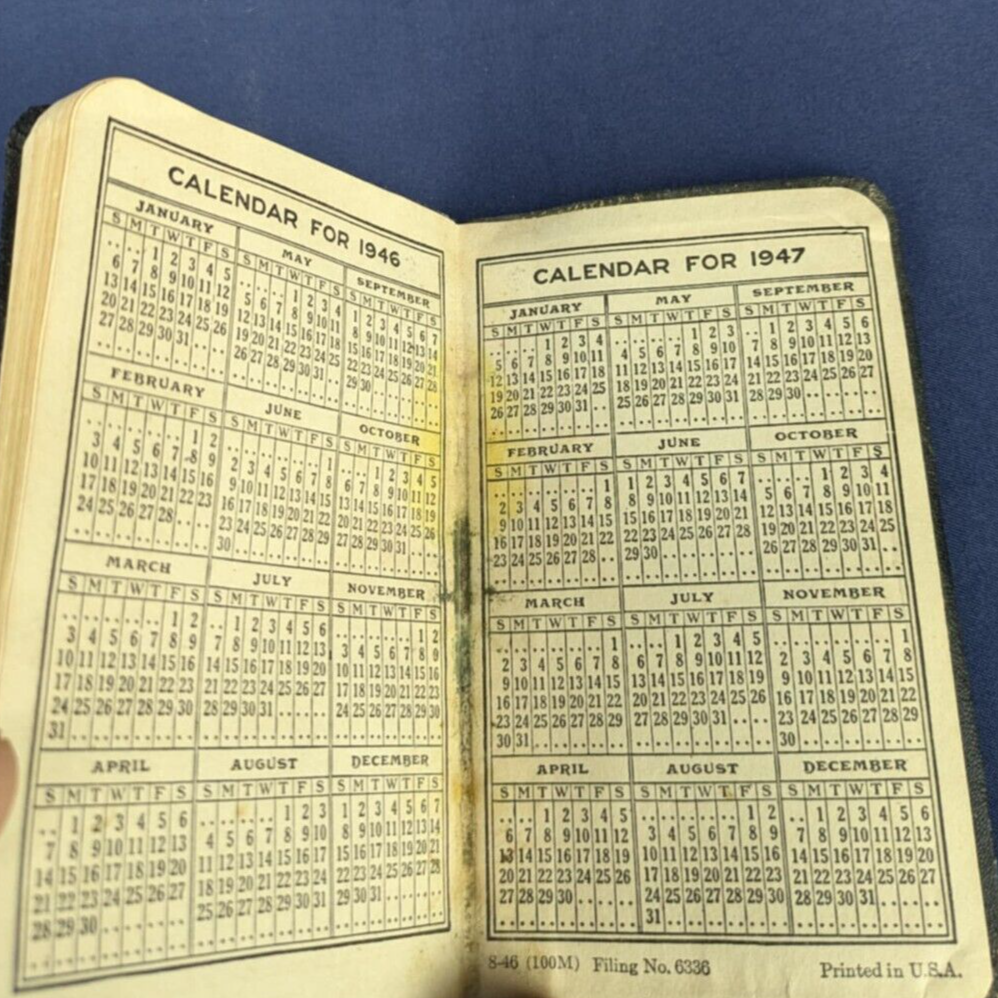 CALENDAR FOR 1946
JANUARY
S M T W T F S
1 2 3 4 5
6 7 8 9 10 11 12
13 14 15 16 17 18 19
20 21 22 23 24 25 26
27 28 29 30 31
FEBRUARY
S M T W T F S
1 2
3 4 5 6 7 8 9
10 11 12 13 14 15 16
17 18 19 20 21 22 23
24 25 26 27 28
MARCH
S M T W T F S
1 2
3 4 5 6 7 8 9
10 11 12 13 14 15 16
17 18 19 20 21 22 23
24 25 26 27 28 29 30
31
APRIL
S M T W T F S
1 2 3 4 5 6
7 8 9 10 11 12 13
14 15 16 17 18 19 20
21 22 23 24 25 26 27
28 29 30
MAY
S M T W T F S
1 2 3 4
5 6 7 8 9 10 11
12 13 14 15 16 17 18
19 20 21 22 23 24 25
26 27 28 29 30 31
JUNE
S M T W T F S
1
2 3 4 5 6 7 8
9 10 11 12 13 14 15
16 17 18 19 20 21 22
23 24 25 26 27 28 29
30
JULY
S M T W T F S
1 2 3 4 5 6
7 8 9 10 11 12 13
14 15 16 17 18 19 20
21 22 23 24 25 26 27
28 29 30 31
AUGUST
S M T W T F S
1 2 3
4 5 6 7 8 9 10
11 12 13 14 15 16 17
18 19 20 21 22 23 24
25 26 27 28 29 30 31
SEPTEMBER
S M T W T F S
1 2 3 4 5 6 7
8 9 10 11 12 13 14
15 16 17 18 19 20 21
22 23 24 25 26 27 28
29 30
OCTOBER
S M T W T F S
1 2 3 4 5
6 7 8 9 10 11 12
13 14 15 16 17 18 19
20 21 22 23 24 25 26
27 28 29 30 31
NOVEMBER
S M T W T F S
1 2
3 4 5 6 7 8 9
10 11 12 13 14 15 16
17 18 19 20 21 22 23
24 25 26 27 28 29 30
DECEMBER
S M T W T F S
1 2 3 4 5 6 7
8 9 10 11 12 13 14
15 16 17 18 19 20 21
22 23 24 25 26 27 28
29 30 31
CALENDAR FOR 1947
JANUARY
S M T W T F S
1 2 3 4
5 6 7 8 9 10 11
12 13 14 15 16 17 18
19 20 21 22 23 24 25
26 27 28 29 30 31
FEBRUARY
S M T W T F S
1
2 3 4 5 6 7 8
9 10 11 12 13 14 15
16 17 18 19 20 21 22
23 24 25 26 27 28
MARCH
S M T W T F S
1
2 3 4 5 6 7 8
9 10 11 12 13 14 15
16 17 18 19 20 21 22
23 24 25 26 27 28 29
30 31
APRIL
S M T W T F S
1 2 3 4 5
6 7 8 9 10 11 12
13 14 15 16 17 18 19
20 21 22 23 24 25 26
27 28 29 30
MAY
S M T W T F S
1 2 3
4 5 6 7 8 9 10
11 12 13 14 15 16 17
18 19 20 21 22 23 24
25 26 27 28 29 30 31
JUNE
S M T W T F S
1 2 3 4 5 6 7
8 9 10 11 12 13 14
15 16 17 18 19 20 21
22 23 24 25 26 27 28
29 30
JULY
S M T W T F S
1 2 3 4 5
6 7 8 9 10 11 12
13 14 15 16 17 18 19
20 21 22 23 24 25 26
27 28 29 30 31
AUGUST
S M T W T F S
1 2
3 4 5 6 7 8 9
10 11 12 13 14 15 16
17 18 19 20 21 22 23
24 25 26 27 28 29 30
31
SEPTEMBER
S M T W T F S
1 2 3 4 5 6
7 8 9 10 11 12 13
14 15 16 17 18 19 20
21 22 23 24 25 26 27
28 29 30
OCTOBER
S M T W T F S
1 2 3 4
5 6 7 8 9 10 11
12 13 14 15 16 17 18
19 20 21 22 23 24 25
26 27 28 29 30 31
NOVEMBER
S M T W T F S
1
2 3 4 5 6 7 8
9 10 11 12 13 14 15
16 17 18 19 20 21 22
23 24 25 26 27 28 29
30
DECEMBER
S M T W T F S
1 2 3 4 5 6
7 8 9 10 11 12 13
14 15 16 17 18 19 20
21 22 23 24 25 26 27
28 29 30 31
8-46 (100M) Filing No. 6336 Printed in U.S.A.